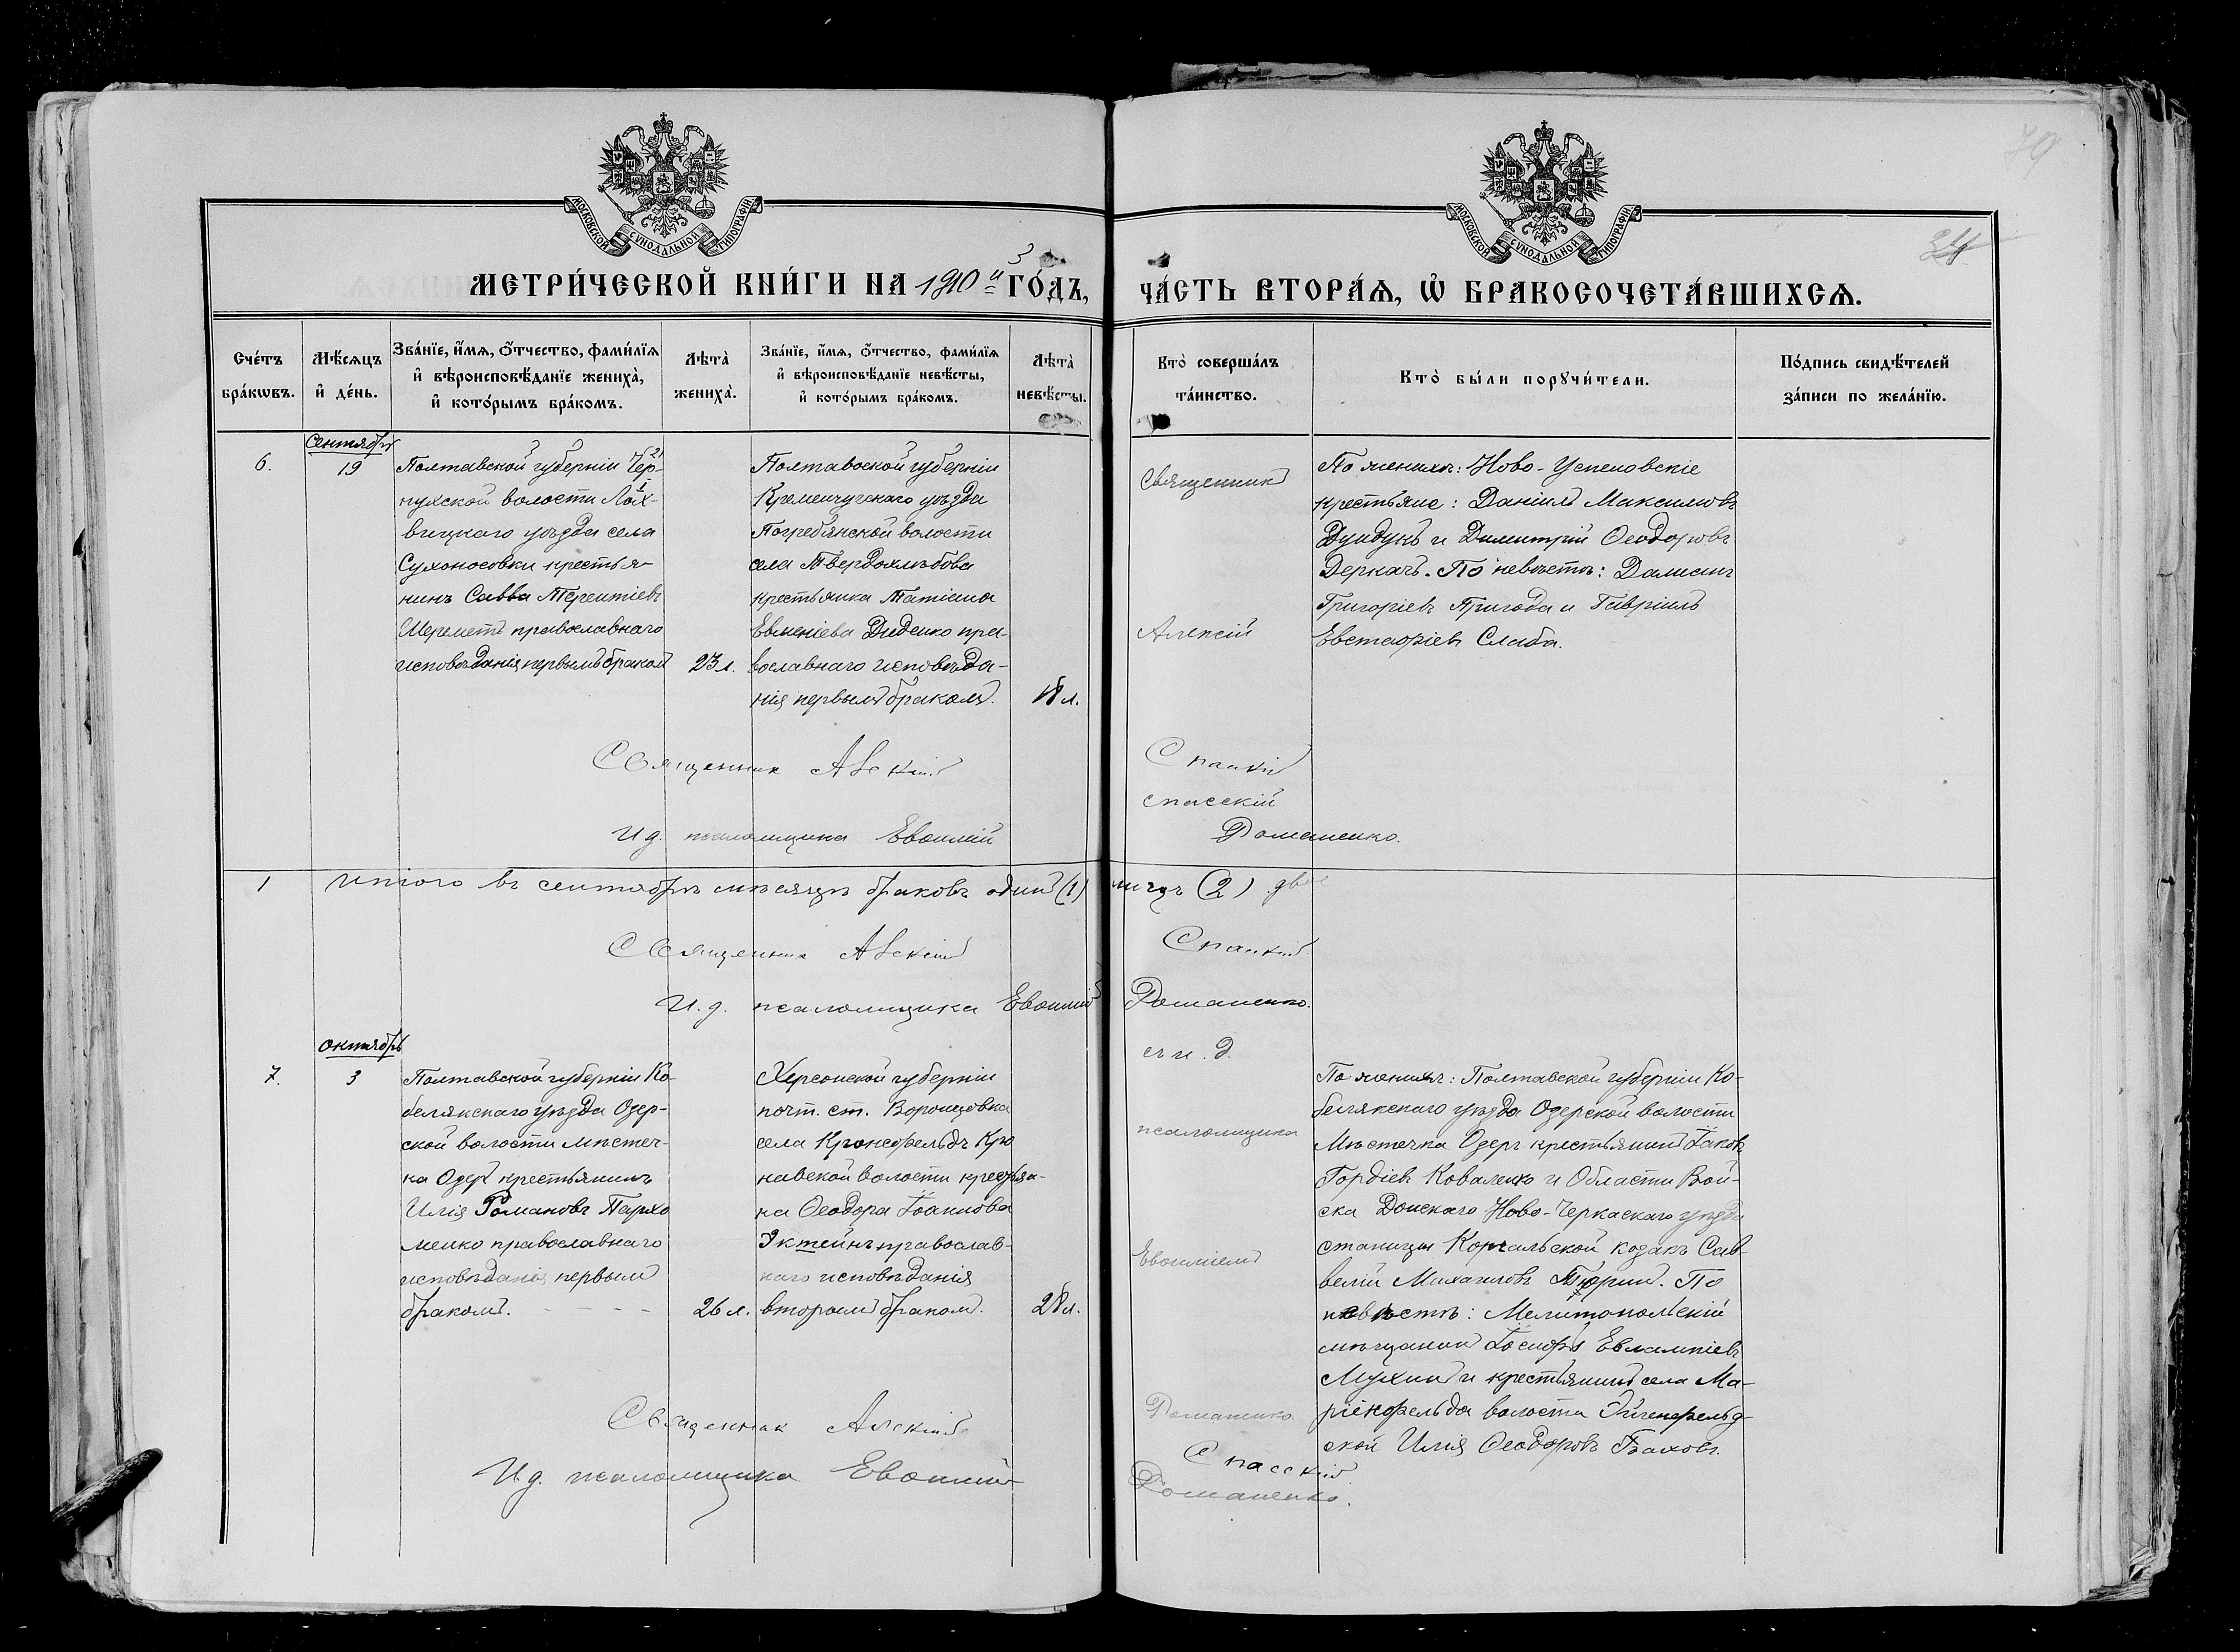 79
МОСКОВСКОЙ СѴНОДАЛЬНОЙ ТИПОГРАФІИ
МОСКОВСКОЙ СѴНОДАЛЬНОЙ ТИПОГРАФІИ
34
3
МЕТРИ́ЧЕСКОЙ КНИ́ГИ НА 1910й ГО́ДЪ,
ЧА́СТЬ ВТОРА́Ѧ, Ѡ҆ БРАКОСОЧЕТА́ВШИХСѦ.
Сче́тъ бра́кѡвъ.
Мѣ́сѧцъ и҆ де́нь.
Зва́нїе, и҆́мѧ, ѻ҆́тчество, фами́лїѧ
и҆ вѣроисповѣ́данїе жениха̀,
и҆ кото́рымъ бра́комъ.
Лѣта̀ жениха̀.
Зва́нїе, и҆́мѧ, ѻ҆́тчество, фами́лїѧ
и҆ вѣроисповѣ́данїе невѣ́сты,
и҆ кото́рымъ бра́комъ.
Лѣта̀ невѣ́сты.
Кто̀ соверша́лъ
та́инство.
Кто̀ бы́ли порꙋчи́тели.
По́дпись свидѣ́телей
за́писи по жела́нїю.
6.
Сентябрь
19
Полтавской губерніи Чер-
нухской волости Лох-
вицкаго уѣзда села
Сухоносовки крестья-
нинъ Савва Терентіевъ
Шереметъ православнаго
исповѣданія, первымъ бракомъ
23 л.
Полтавской губерніи
Кременчугскаго уѣзда
Погребянской волости
села Твердохлѣбова
крестьянка Татіана
Евменіева Диденко пра-
вославнаго исповѣда-
нія первымъ бракомъ.
18 л.
Священникъ
Алексій
Спасскій
По женихѣ: Ново-Успеновскіе
крестьяне: Даніилъ Максимовъ
Дундукъ и Димитрій Ѳеодоровъ
Деркачъ. По невѣстѣ: Дамианъ
Григоріевъ Пригода и Гавріилъ
Евстафіевъ Слаба.
Священникъ Алексій Спасскій
И д. псаломщика Евѳимій Романенко.
1 итого въ сентябрѣ мѣсяцѣ браковъ одинъ (1) лицъ (2) двое
Священникъ Алексій Спасскій
И. д. псаломщика Евѳимій Романенко.
7.
Октябрь
3
Полтавской губерніи Ко-
белякскаго уѣзда Озер-
ской волости мѣстеч-
ка Озеръ крестьянинъ
Илія Романовъ Пархо
менко православнаго
исповѣданія, первымъ
бракомъ. - - - -
26 л.
Херсонской губерніи
почт. ст. Воронцовка
села Кронсфельдъ Кро
навской волости крестьян-
ка Ѳеодора Іоаннова
Эктейнъ православ-
наго исповѣданія
вторымъ бракомъ.
28 л.
съ и. д.
псаломщика
Евѳиміемъ
Романенко
По женихѣ: Полтавской губерніи Ко-
белякскаго уѣзда Озерской волости
Мѣстечка Озеръ крестьянинъ Іаковъ
Гордіевъ Коваленко и Области Вой-
ска Донскаго Ново-Черкаскаго уѣзда
станицы козакъ Сав-
велій Михаиловъ Тюринъ. По
невѣстѣ: Мелитопольскій
мѣщанинъ Іосифъ Евлампіевъ
Мухинъ и крестьянинъ села Ма-
ріенфельда волости Эйгенфельд-
ской Илія Ѳеодоровъ Баховъ.
Священникъ Алексій Спасскій
И д. псаломщика Евѳимій Романенко.